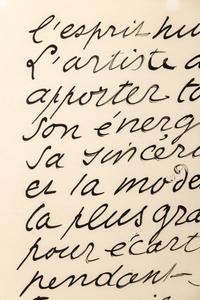 l'esprit hu
L'artiste a
apporter to
son énerg
sa sincéri
et la mode
la plus gra
pour écart
pendant